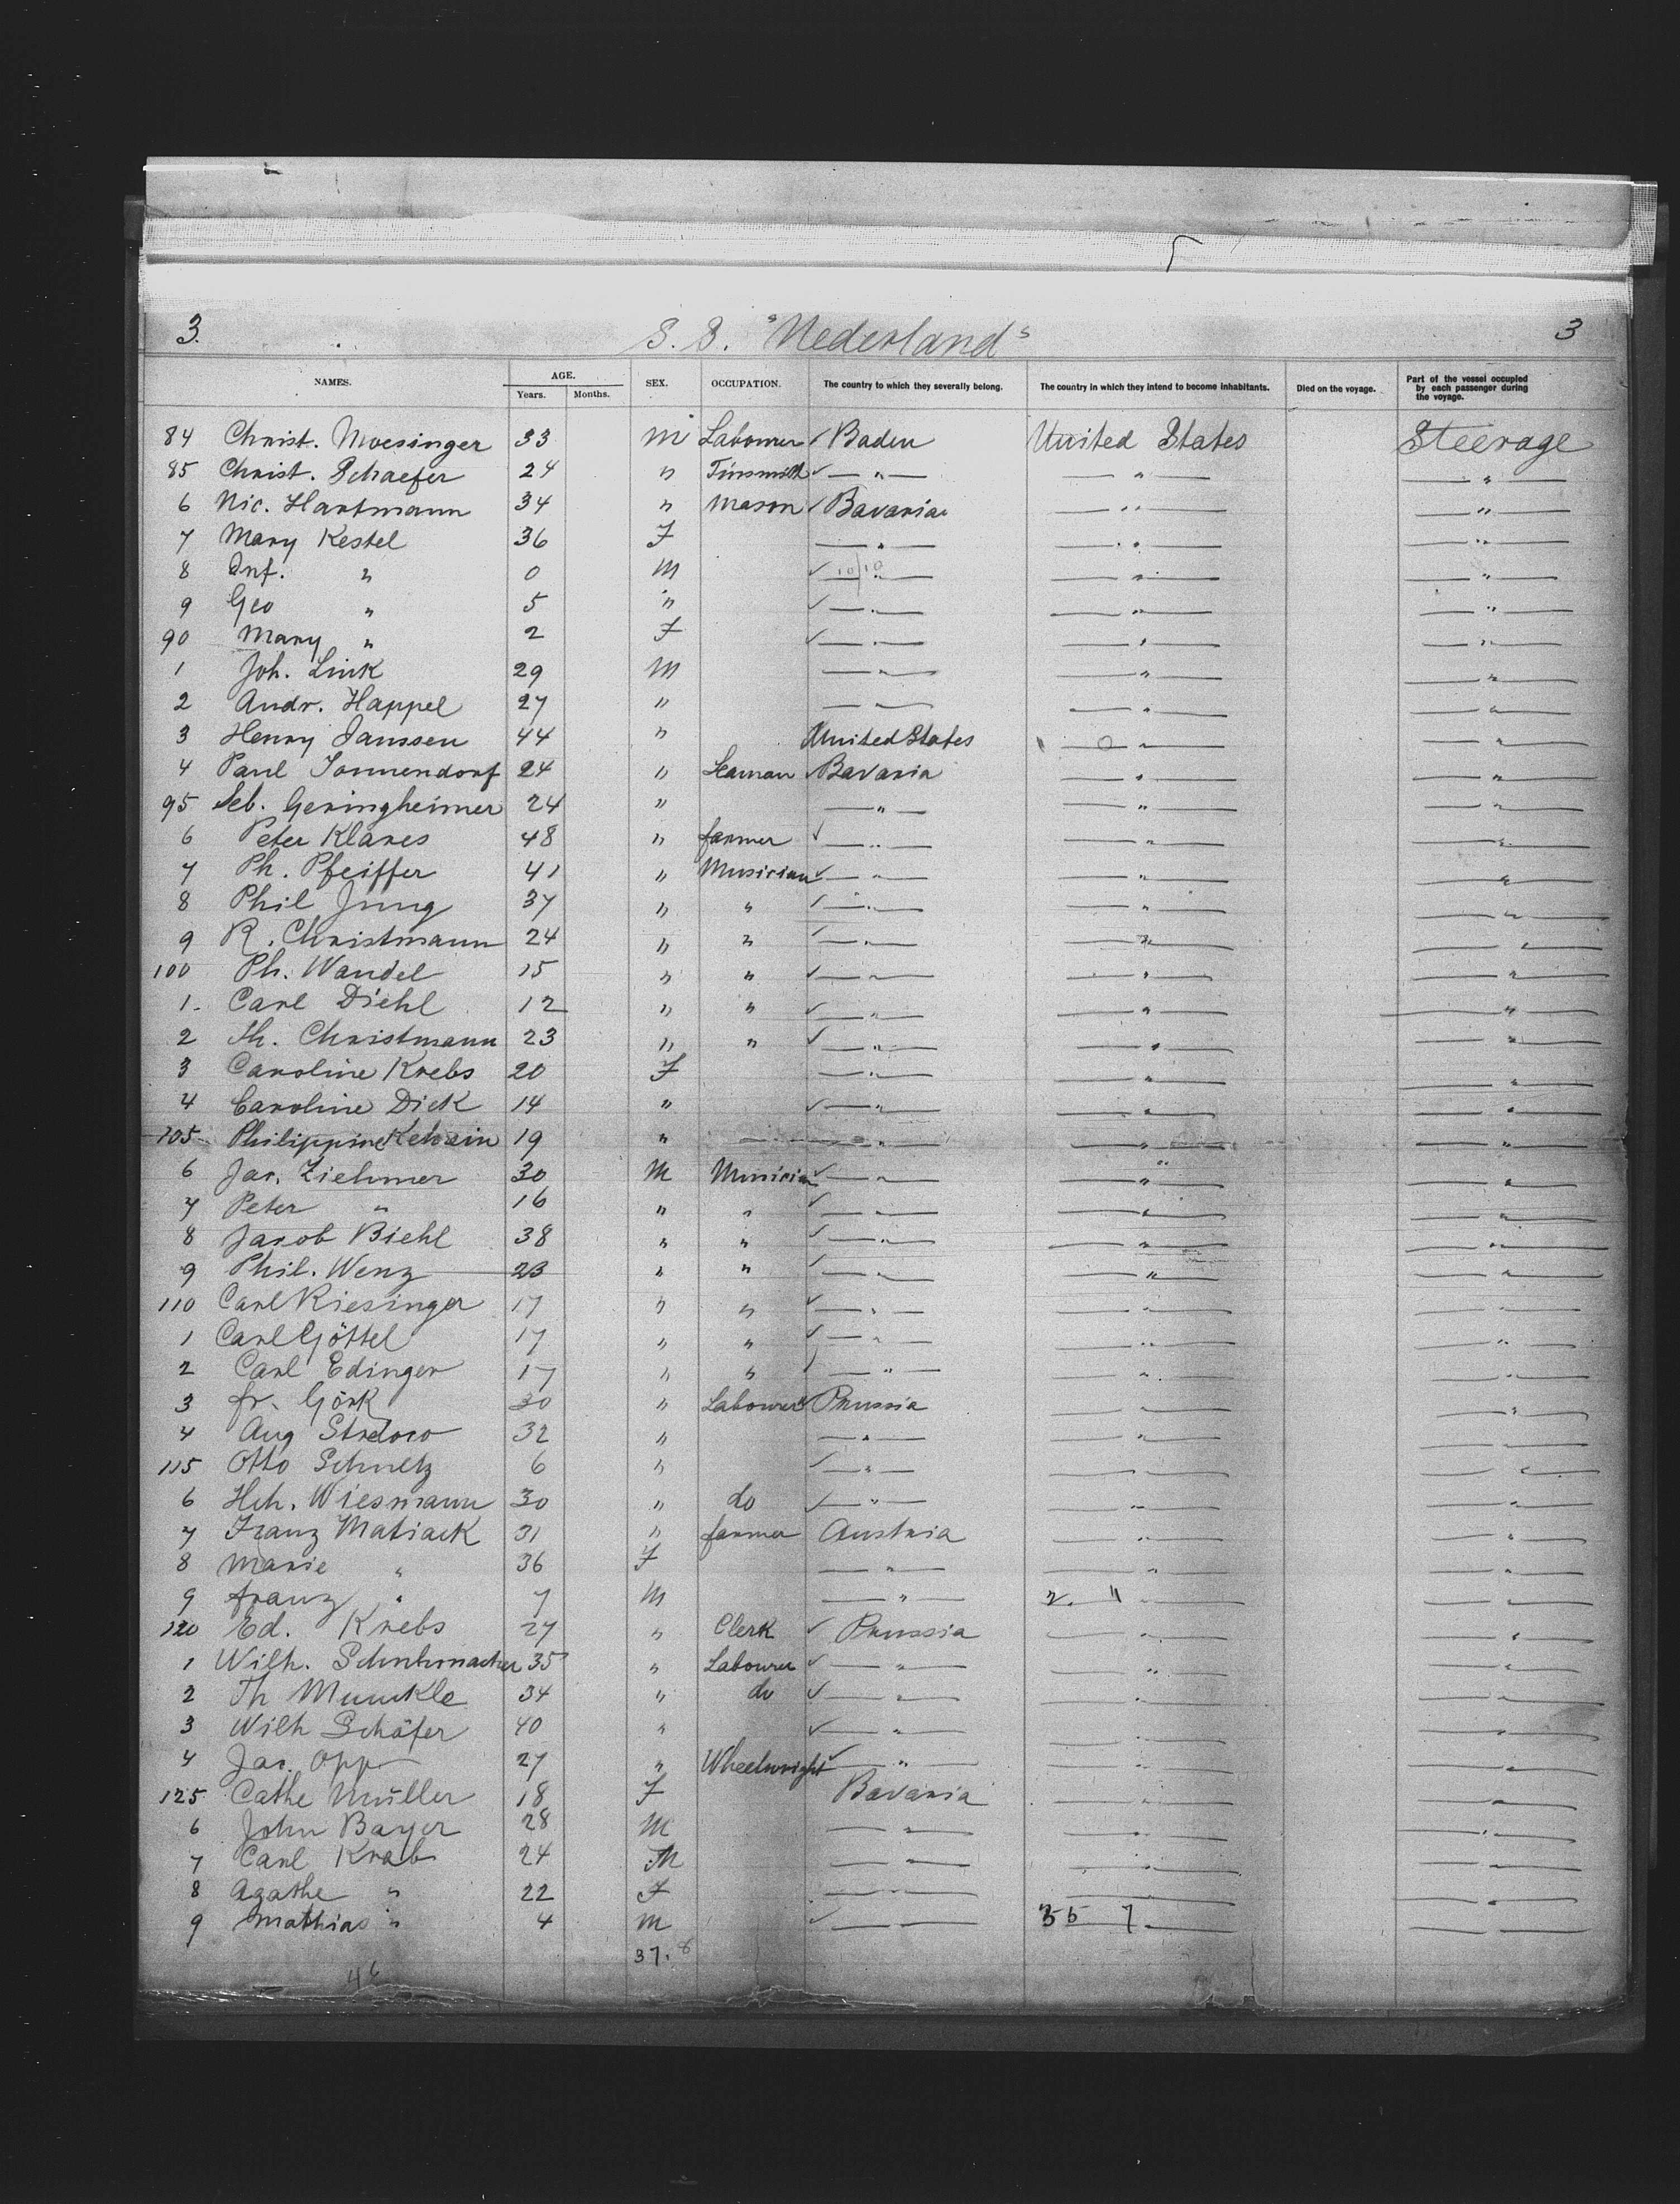 3. S.S. "Nederland" 3
NAMES. AGE. SEX. OCCUPATION. The country to which they severally belong. The country in which they intend to become inhabitants. Died on the voyage. Part of the vessel occupied by each passenger during the voyage.
Years. Months.
84 Christ. Moesinger 33 M Labourer ✓ Baden United States Steerage
85 Christ. Schaefer 24 " Tinsmith ✓ — " — — " — — " —
6 Nic. Hartmann 34 " Mason ✓ Bavaria — " — — " —
7 Mary Kestel 36 F — " — — " — — " —
8 Inf. " 0 M ✓ 10/10 — " — — " — — " —
9 Geo " 5 " ✓ — " — — " — — " —
90 Mary " 2 F ✓ — " — — " — — " —
1 Joh. Link 29 M — " — — " — — " —
2 Andr. Happel 27 " — " — — " — — " —
3 Henry Janssen 44 " United States — " — — " —
4 Paul Sonnendorf 24 " Seaman ✓ Bavaria — " — — " —
95 Seb. Geringheimer 24 " — " — — " — — " —
6 Peter Klares 48 " farmer ✓ — " — — " — — " —
7 Ph. Pfeiffer 41 " Musician ✓ — " — — " — — " —
8 Phil Jung 37 " " ✓ — " — — " — — " —
9 R. Christmann 24 " " ✓ — " — — " — — " —
100 Ph. Wandel 15 " " ✓ — " — — " — — " —
1. Carl Diehl 12 " " ✓ — " — — " — — " —
2 Th. Christmann 23 " " ✓ — " — — " — — " —
3 Caroline Krebs 20 F — " — — " — — " —
4 Caroline Dick 14 " ✓ — " — — " — — " —
105 Philippine 19 " — " — — " — — " —
6 Jac. Ziehmer 30 M Musician ✓ — " — — " — — " —
7 Peter " 16 " " ✓ — " — — " — — " —
8 Jacob Biehl 38 " " ✓ — " — — " — — " —
9 Phil. Wenz 23 " " ✓ — " — — " — — " —
110 Carl Riesinger 17 " " ✓ — " — — " — — " —
1 Carl Göttel 17 " " ✓ — " — — " — — " —
2 Carl Edinger 17 " " — " — — " — — " —
3 fr. Görk 30 " Labourer ✓ Prussia — " — — " —
4 Aug 32 " — " — — " — — " —
115 Otto Schultz 6 " ✓ — " — — " — — " —
6 Hch. Wiesmann 30 " do ✓ — " — — " — — " —
7 Franz Matiack 31 " farmer Austria — " — — " —
8 Marie " 36 F — " — — " — — " —
9 franz " 7 M — " — 2. " — " —
120 Ed. Krebs 27 " Clerk ✓ Prussia — " — — " —
1 Wilh. Schuhmacher 35 " Labourer ✓ — " — — " — — " —
2 Th Munkle 34 " do ✓ — " — — " — — " —
3 Wilh Schäfer 40 " ✓ — " — — " — — " —
4 Jac. Opp 27 " Wheelwright ✓ — " — — " — — " —
125 Cathe Müller 18 F Bavaria — " — — " —
6 John Bayer 28 M — " — — " — — " —
7 Carl Krab 24 M — " — — " — — " —
8 Agathe " 22 F — " — — " — — " —
9 Mathias " 4 M ✓ — " — 35 7 — " —
37. 8
46